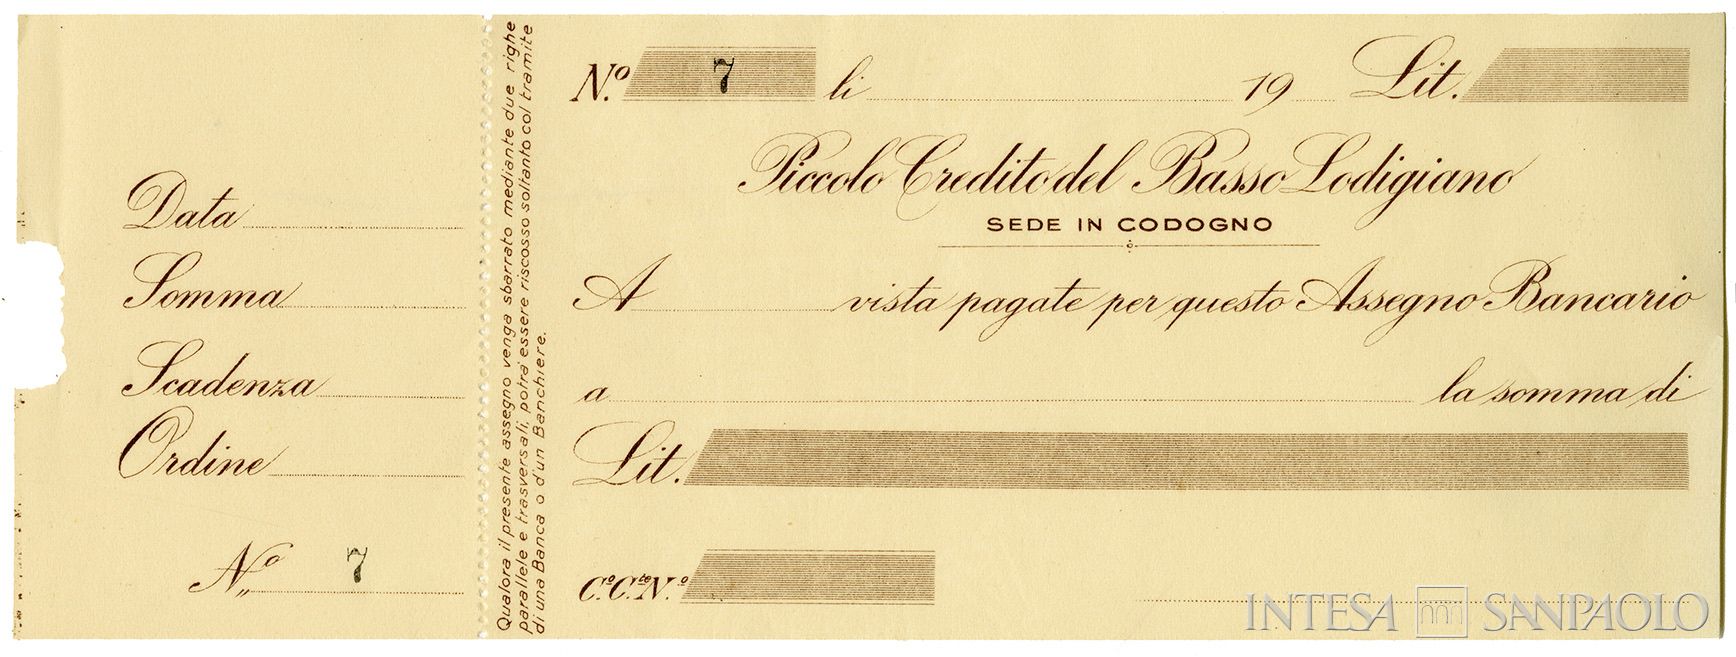 Data
Somma
Scadenza
Ordine
N.º 7
Qualora il presente assegno venga sbarrato mediante due righe
parallele e trasversali, potrà essere riscosso soltanto col tramite
di una Banca o d'un Banchiere.
N.º 7 li 19 Lit.
Piccolo Credito del Basso Lodigiano
SEDE IN CODOGNO
A vista pagate per questo Assegno Bancario
a la somma di
Lit.
C.º C.te N.º
INTESA SANPAOLO